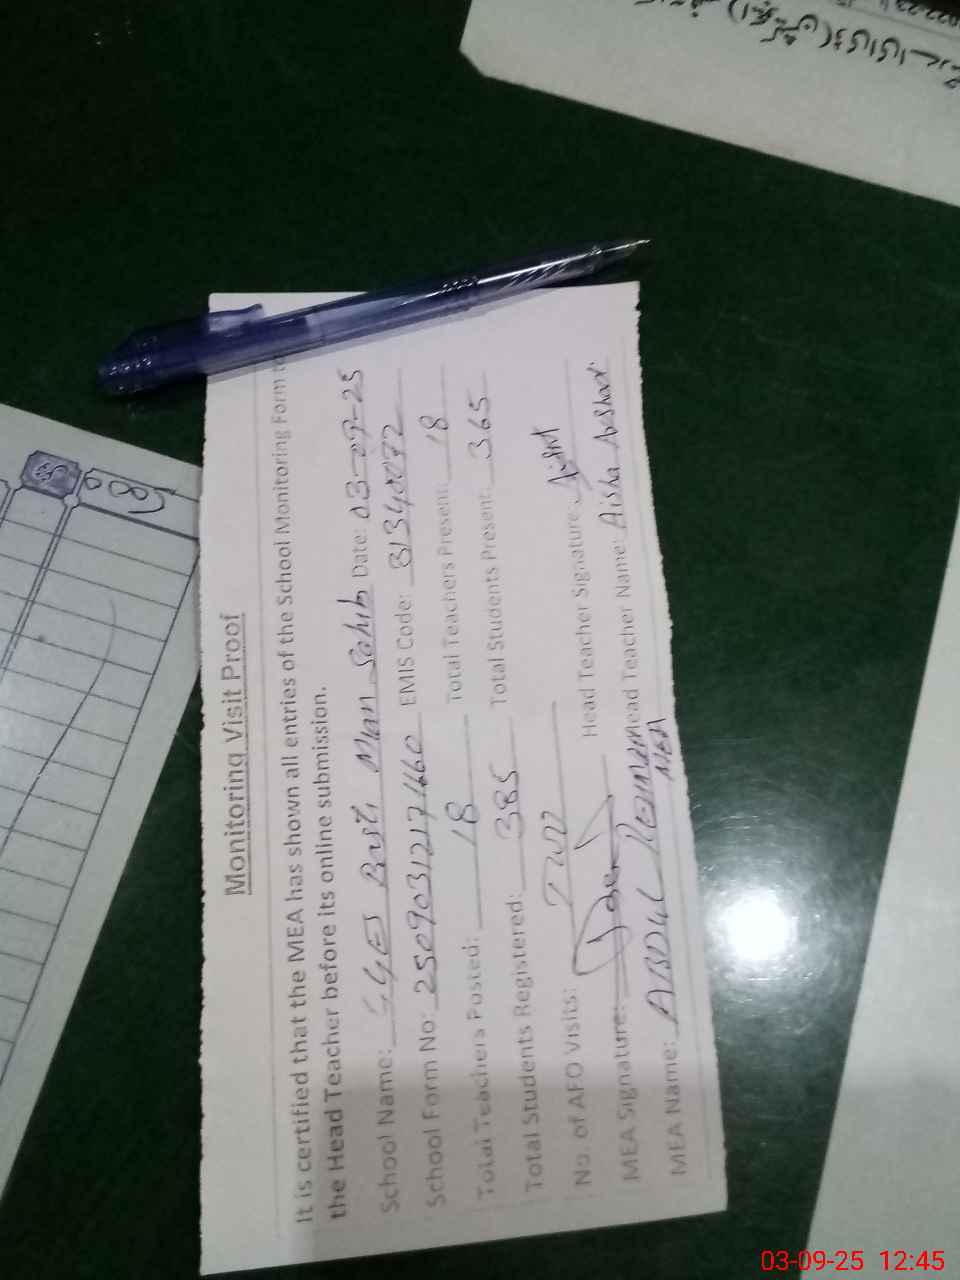 Monitoring Visit Proof
It is certified that the MEA has shown all entries of the School Monitoring Form to
the Head Teacher before its online submission.
School Name: GGES Basti Mian Sahib Date: 03-09-25
School Form No: 25090312171660 EMIS Code: 31340072
Total Teachers Posted: 18 Total Teachers Present: 18
Total Students Registered: 385 Total Students Present: 365
No. of AEO Visits: Two
MEA Signature: Head Teacher Signature:
MEA Name: ABDUL REHMAN Head Teacher Name: Aisha Arshad
MEA
03-09-25 12:45